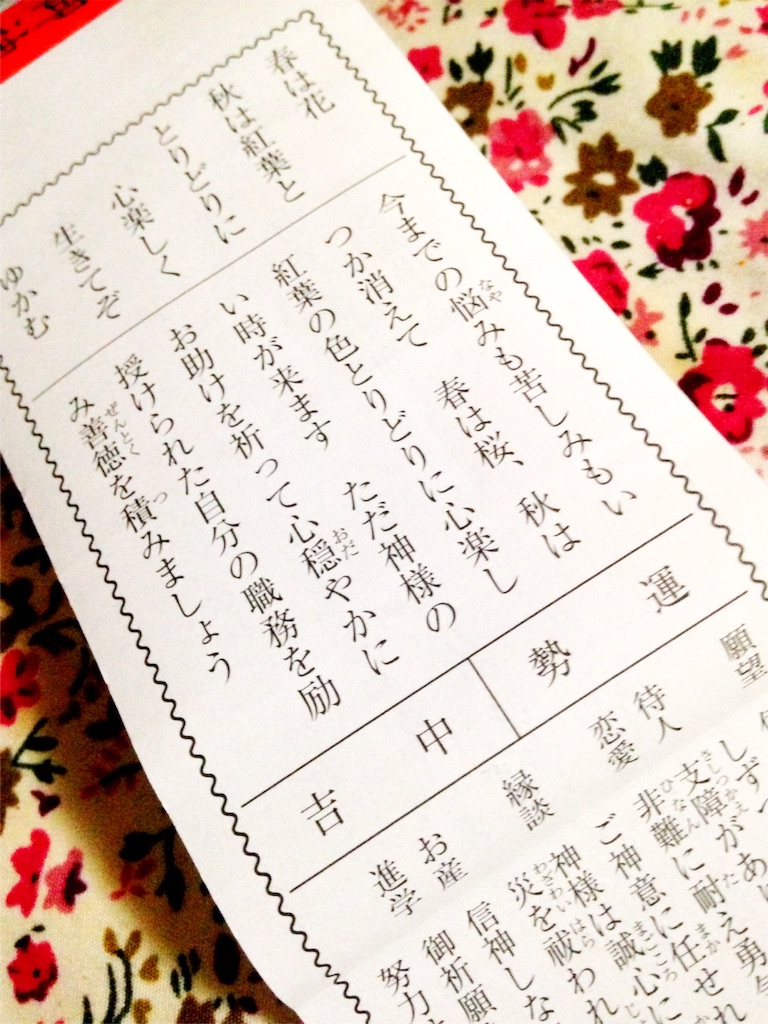 春は花
秋は紅葉と
とりどりに
心楽しく
生きてぞ
ゆかむ
今までの悩みも苦しみもい
つか消えて　春は桜、秋は
紅葉の色とりどりに心楽し
い時が来ます　ただ神様の
お助けを祈って心穏やかに
授けられた自分の職務を励
み善徳を積みましょう
運勢
中吉
願望
待人
恋愛
縁談
お産
進学
しずつ
支障があ
非難に耐え勇気
ご神意に任せ
神様は誠心に
災を祓われ
信神しな
御祈願
努力